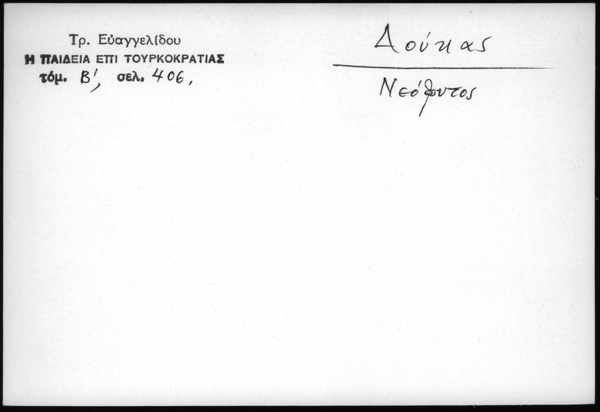 Τρ. Εὐαγγελίδου
Η ΠΑΙΔΕΙΑ ΕΠΙ ΤΟΥΡΚΟΚΡΑΤΙΑΣ
τόμ. Β', σελ. 406.
Δούκας
Νεόφυτος